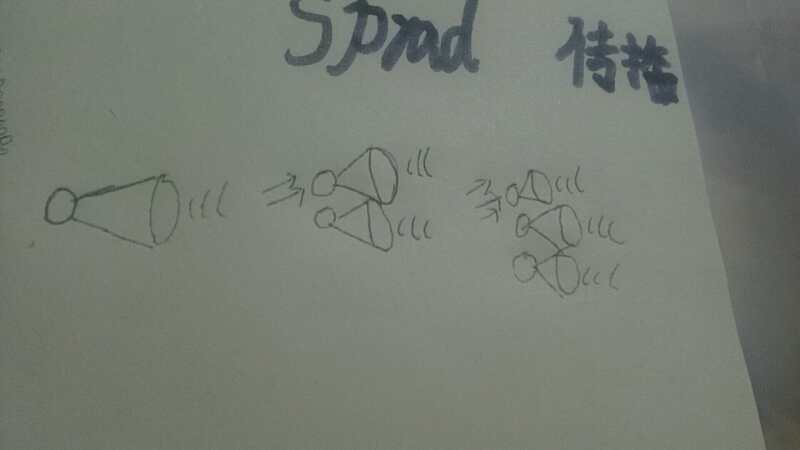 Sprad 传播